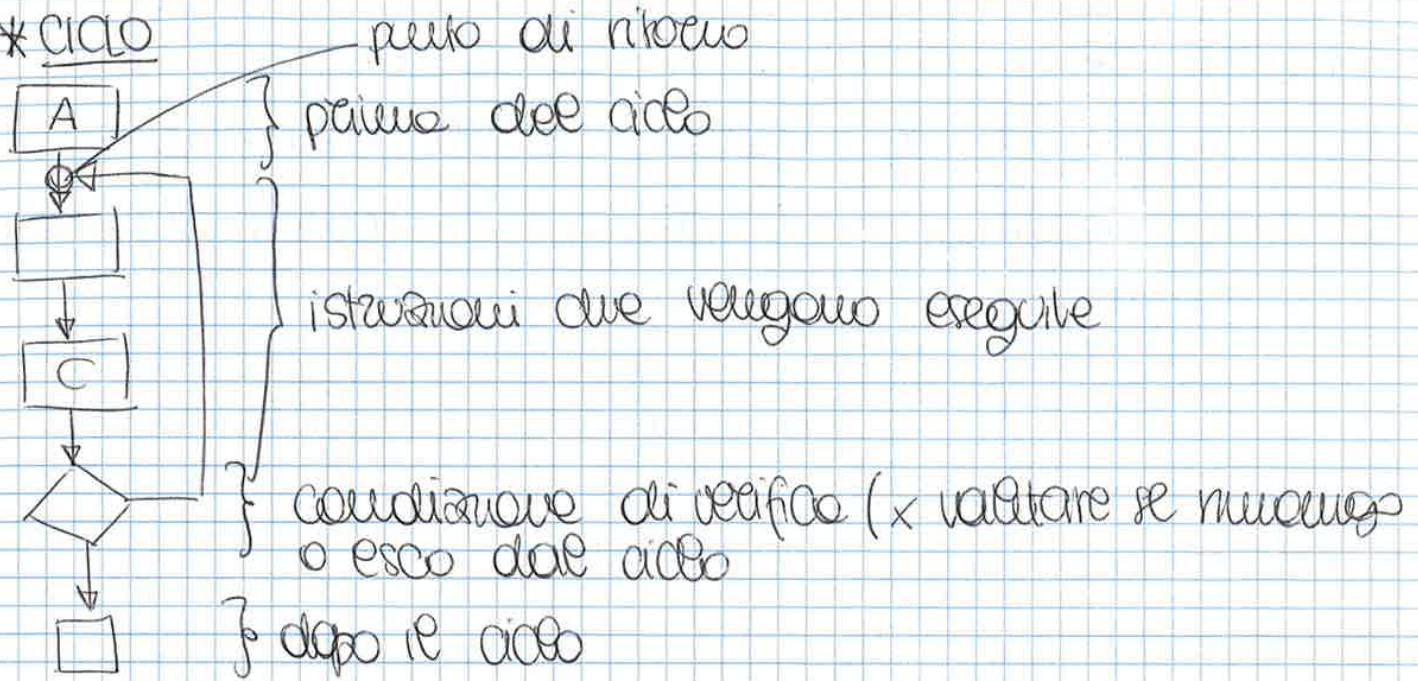 * CICLO
punto di ritorno
A
prima del ciclo
istruzioni che vengono eseguite
C
condizione di verifica (x valutare se rimango
o esco dal ciclo
dopo il ciclo